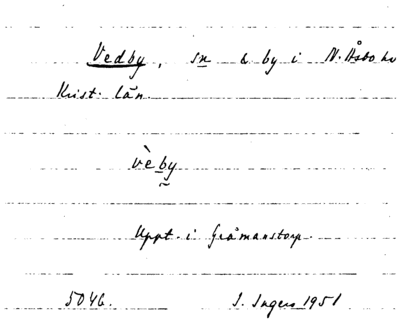 Vedby, sn & by i N. Åsbo hd
Krist. län.
vèby
Uppt. i Gråmanstorp.
5046. I. Ingers 1951